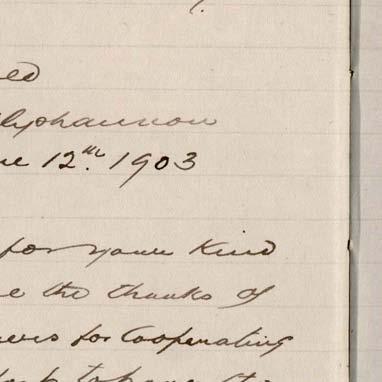 ed
lyshannon
ne 12th. 1903
for your Kind
e the thanks of
ers for Cooperating